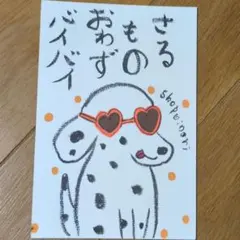 さる
もの
おわず
バイバイ
shopu:nori